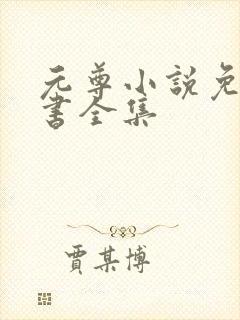 元尊小説免
書全集
賈某博